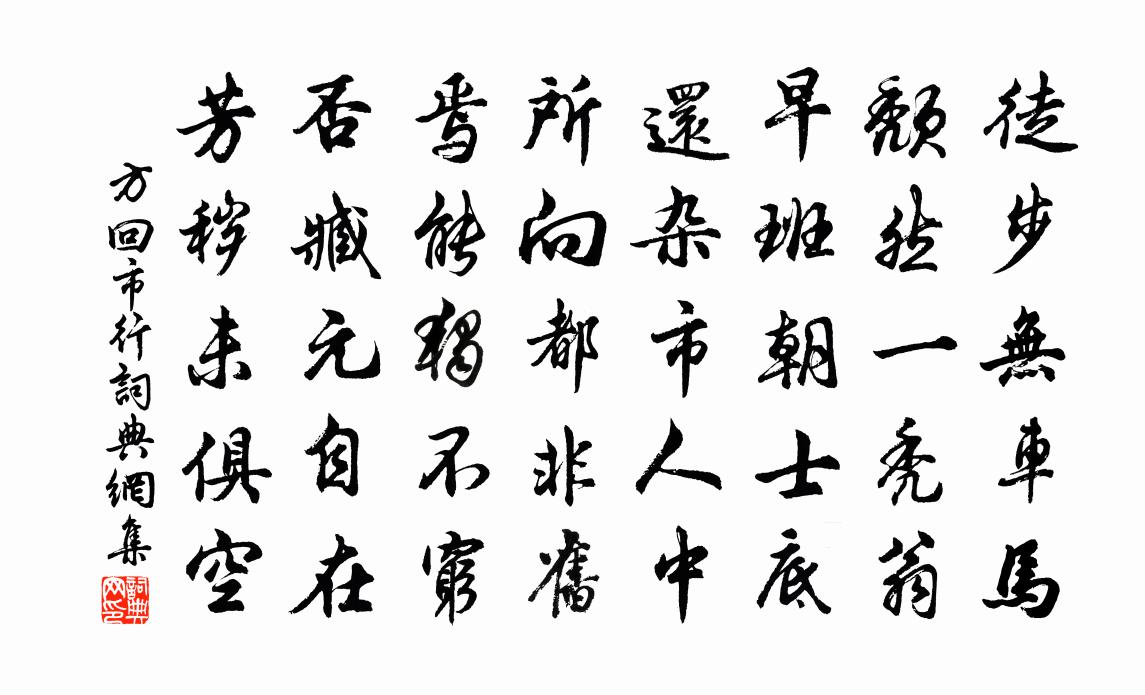 徒步無車馬
頹然一禿翁
早班朝士底
還杂市人中
所向都非舊
焉能獨不窮
否臧元自在
芳穢未俱空
方回市行詞典網集
詞典网印